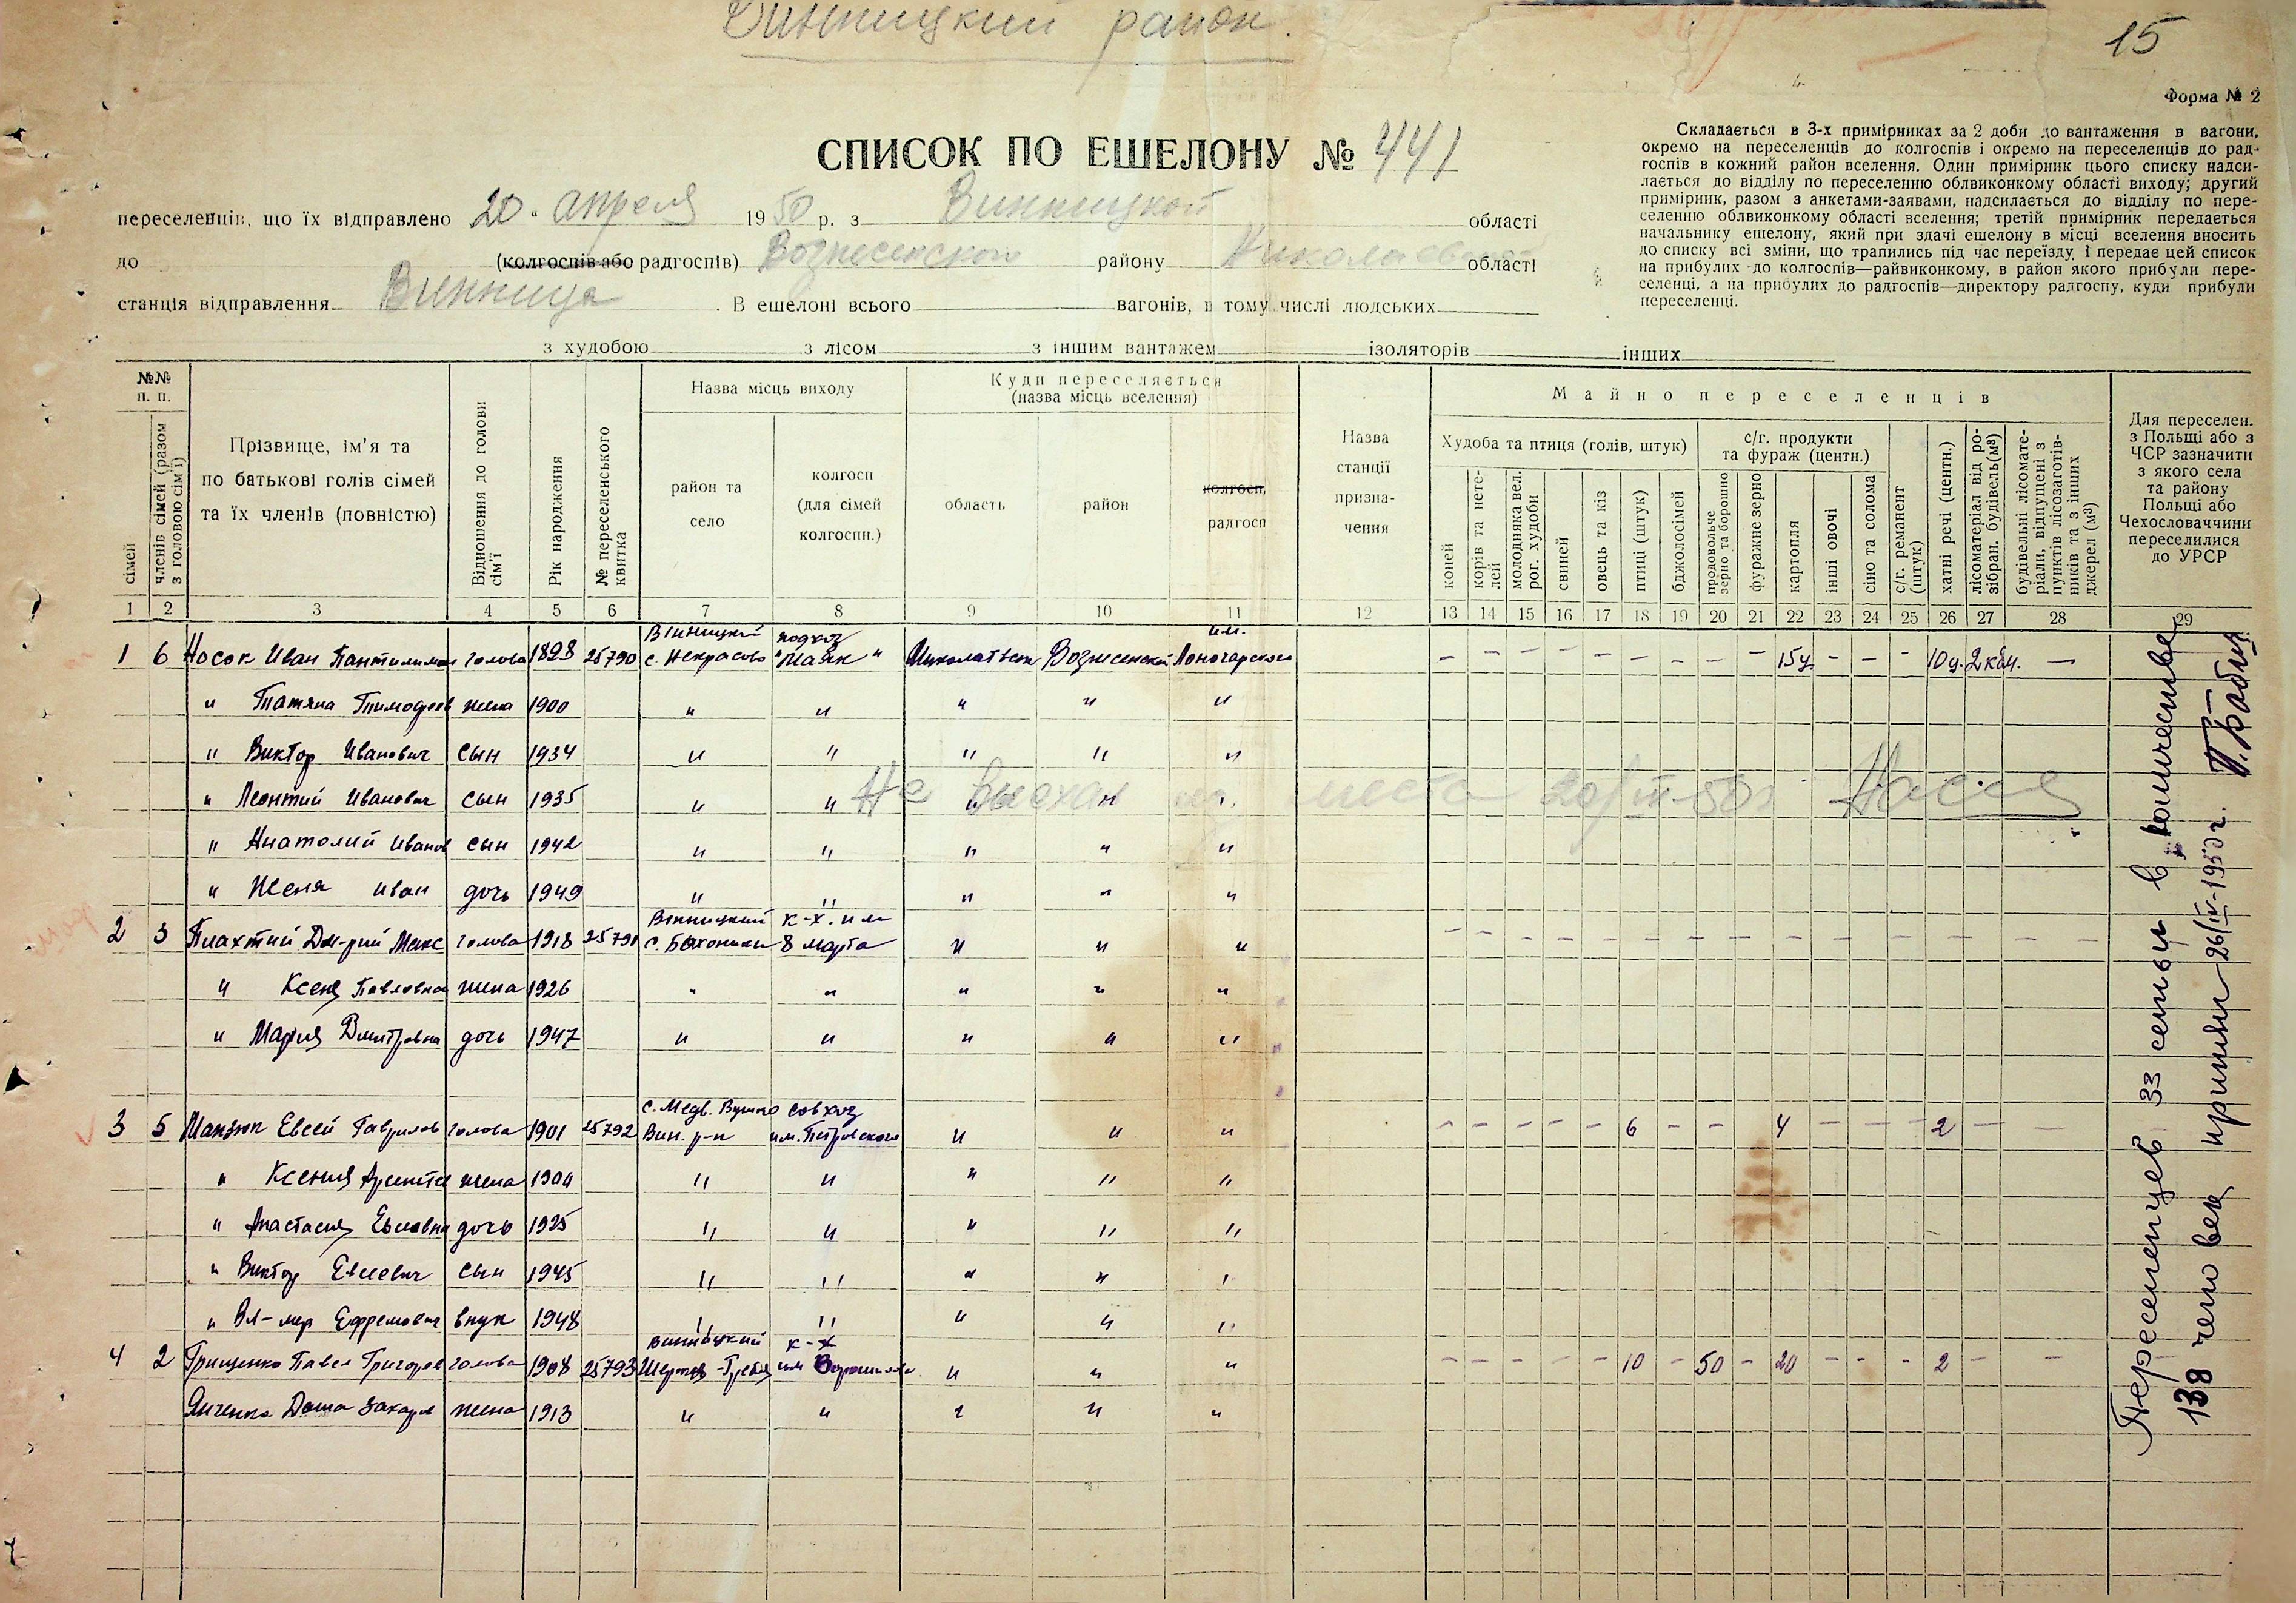 Винницкий район.
15
Форма № 2
СПИСОК ПО ЕШЕЛОНУ № 441
Складається в 3-х примірниках за 2 доби до вантаження в вагони,
окремо на переселенців до колгоспів і окремо на переселенців до рад-
госпів в кожний район вселення. Один примірник цього списку надси-
лається до відділу по переселенню облвиконкому області виходу; другий
примірник, разом з анкетами-заявами, надсилається до відділу по пере-
селенню облвиконкому області вселення; третій примірник передається
начальнику ешелону, який при здачі ешелону в місці вселення вносить
до списку всі зміни, що трапились під час переїзду, і передає цей список
на прибулих до колгоспів—райвиконкому, в район якого прибули пере-
селенці, а на прибулих до радгоспів—директору радгоспу, куди прибули
переселенці.
переселенців, що їх відправлено 20 " апреля 1950 р. з Винницкой області
до (колгоспів або радгоспів) Вознесенского району Николаевской області
станція відправлення Винница. В ешелоні всього вагонів, в тому числі людських
з худобою з лісом з іншим вантажем ізоляторів інших
№№ п. п.
сімей
членів сімей (разом з головою сім'ї)
Прізвище, ім'я та
по батькові голів сімей
та їх членів (повністю)
Відношення до голови сім'ї
Рік народження
№ переселенського квитка
Назва місць виходу
район та село
колгосп (для сімей колгоспн.)
Куди переселяється
(назва місць вселення)
область
район
колгосп, радгосп
Назва станції призна- чення
Майно переселенців
Худоба та птиця (голів, штук)
коней
корів та нете- лей
молодняка вел. рог. худоби
свиней
овець та кіз
птиці (штук)
бджолосімей
с/г. продукти та фураж (центн.)
продовольче зерно та борошно
фуражне зерно
картопля
інші овочі
сіно та солома
с/г. реманент (штук)
хатні речі (центн.)
лісоматеріал від ро- зібран. будівель (м³)
будівельні лісомате- ріали, відпущені з пунктів лісозаготів- ників та з інших джерел (м³)
Для переселен. з Польщі або з ЧСР зазначити з якого села та району Польщі або Чехословаччини переселилися до УРСР
1 2 3 4 5 6 7 8 9 10 11 12 13 14 15 16 17 18 19 20 21 22 23 24 25 26 27 28 29
Винницкий подхоз им.
1 6 Носок Иван Пантилимон голова 1898 25790 с. Некрасово "Маяк" Николаевск Вознесенский Лоначарского – – – – – – – – – 15ц. – – – 10ц. 2 кб.м. —
" Татяна Тимофеев жена 1900 " " " " "
" Виктор Иванович сын 1934 " " " " "
" Леонтий Иванович сын 1935 " " " " "
Не выехал из места 20/IV-50г. Носок
" Анатолий Иванов сын 1942 " " " " "
" Женя Иван дочь 1949 " " " " "
Винницкий к-х. им
2 3 Плахтий Дм-рий Макс голова 1918 25791 с. Бохоники 8 марта " " " – – – – – – – – – – – – – – – –
" Ксеня Павловна жена 1926 " " " " "
" Мария Дмитровна дочь 1947 " " " " "
с. Медв. Вушко совхоз
3 5 Манзюк Евсей Гаврилов голова 1901 25792 Вин. р-н им. Петровского " " " – – – – – 6 – – – 4 – – – 2 – –
" Ксения Арсентев жена 1904 " " " " "
" Анастасия Евсеевна дочь 1925 " " " " "
" Виктор Евсеевич сын 1945 " " " " "
" Вл-мер Ефремович внук 1948 " " " " "
Винницкий к-х
4 2 Грищенко Павел Григоров голова 1908 25793 им Ворошилова " " " – – – – – 10 – 50 – 20 – – – 2 – –
Янченко Даша Захаров жена 1913 " " " " "
Переселенцев 33 семьи в количестве
138 человек принял 26/IV-1950 г. П. Бабий